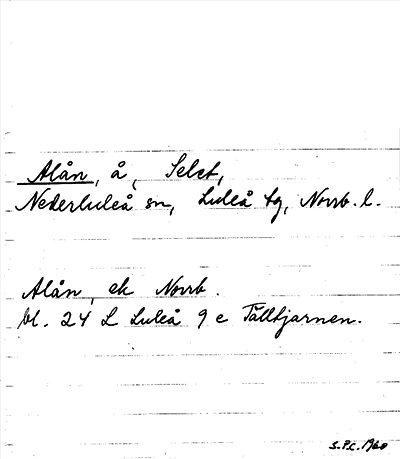 Alån, å, Selet,
Nederluleå sn, Luleå tg, Norrb. l.
Alån, ek Norrb.
bl. 24 L Luleå 9 e Tälltjärnen.
S.P.C. 1960